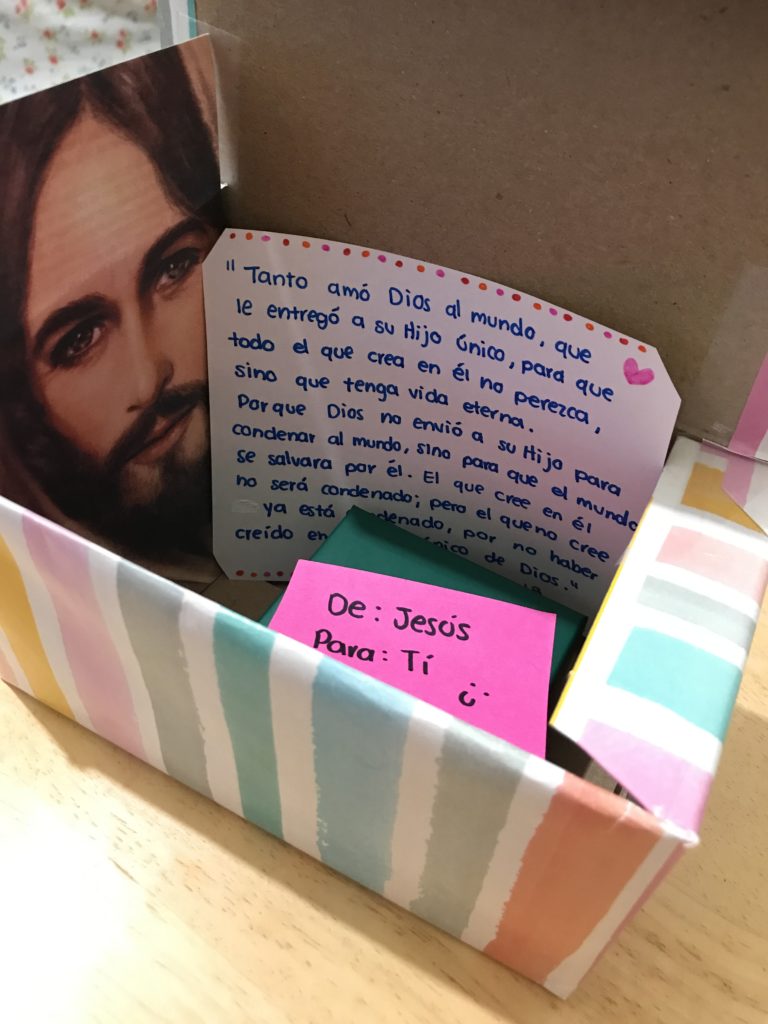 "Tanto amó Dios al mundo, que
le entregó a su Hijo único, para que
todo el que crea en él no perezca,
sino que tenga vida eterna.
Porque Dios no envió a su Hijo para
condenar al mundo, sino para que el mundo
se salvara por él. El que cree en él
no será condenado; pero el que no cree
ya está denado, por no haber
creído en nico de Dios."
De: Jesús
Para: Tí